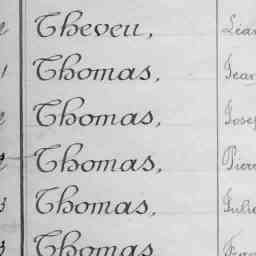 Theveu,
1 Thomas, Jean
Thomas, Jose
Thomas, Pierr
3 Thomas, Julie
3 Thomas